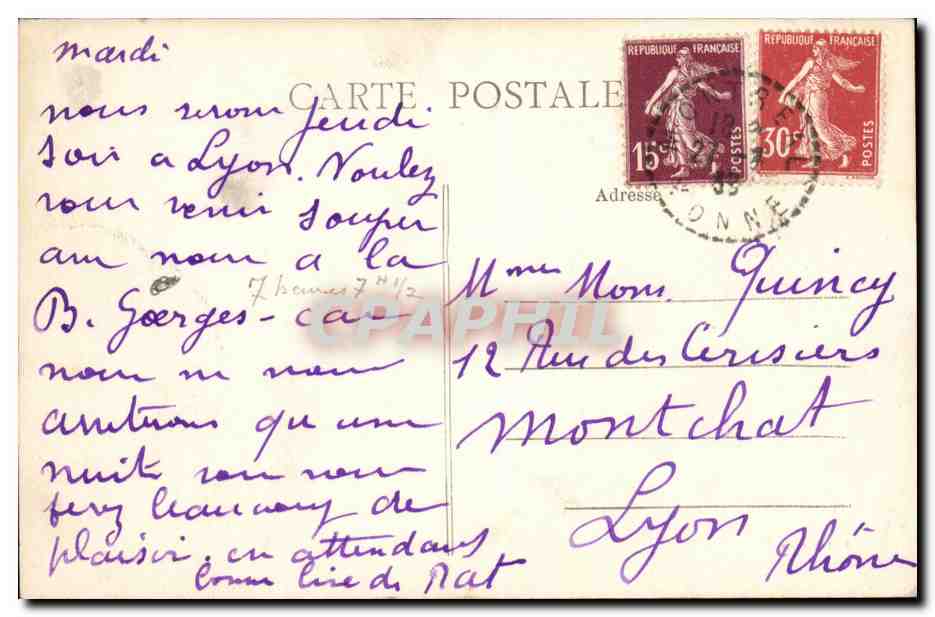 mardi
CARTE POSTALE
nous serons Jeudi
soir a Lyon. Voulez
vous venir souper
avec nous a la
7 heures 7 H 1/2
B. Goerges - car
nous ne nous
arretrons qu une
nuit vous nous
ferez beaucoup de
plaisir. en attendant
REPUBLIQUE FRANÇAISE
15c
POSTES
REPUBLIQUE FRANÇAISE
30c
POSTES
ONNE
Adresse
Mme Mons. Quincy
12 Rue des Cerisiers
Montchat
Lyon
Rhône
CPAPHIL